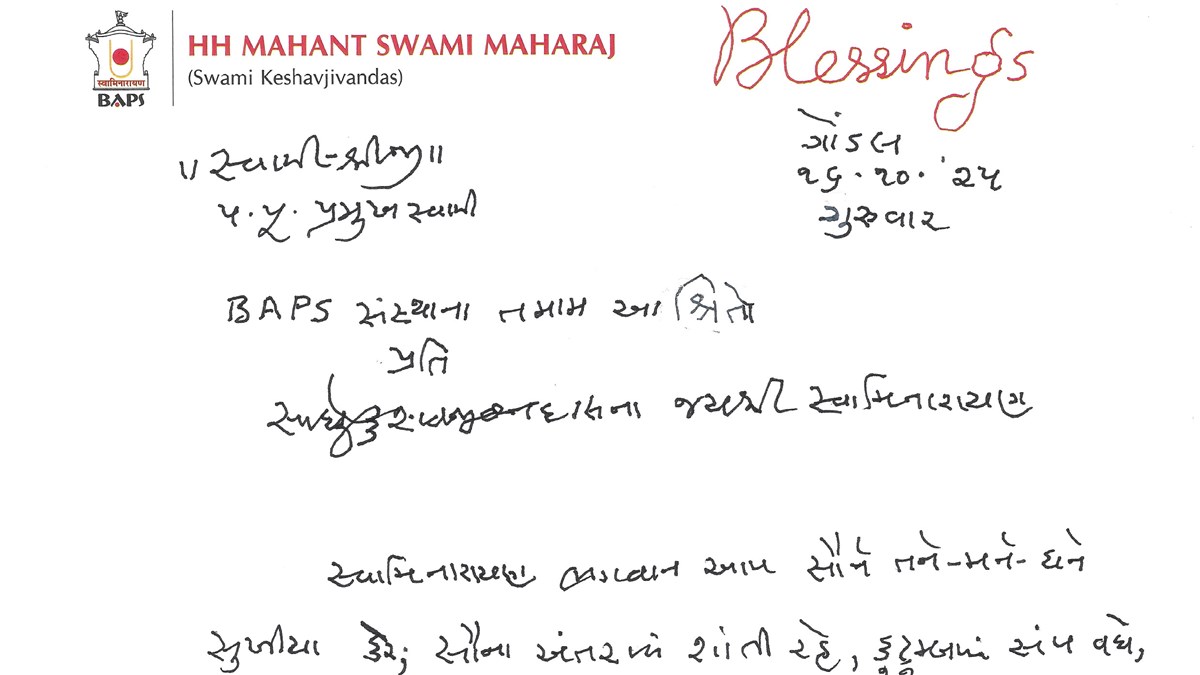 HH MAHANT SWAMI MAHARAJ
(Swami Keshavjivandas)
સ્વામિનારાયણ
BAPS
Blessings
॥ સ્વામી-શ્રીજી ॥
પ.પૂ. પ્રમુખસ્વામી
ગોંડલ
૧૬.૧૦.'૨૫
ગુરુવાર
BAPS સંસ્થાના તમામ આશ્રિતો
પ્રતિ
સાધુ કેશવજીવનદાસના જયશ્રી સ્વામિનારાયણ
સ્વામિનારાયણ ભગવાન આપ સૌને તને-મને-ધને
સુખીયા કરે; સૌના અંતરમાં શાંતી રહે, કુટુમ્બમાં સંપ વધે,